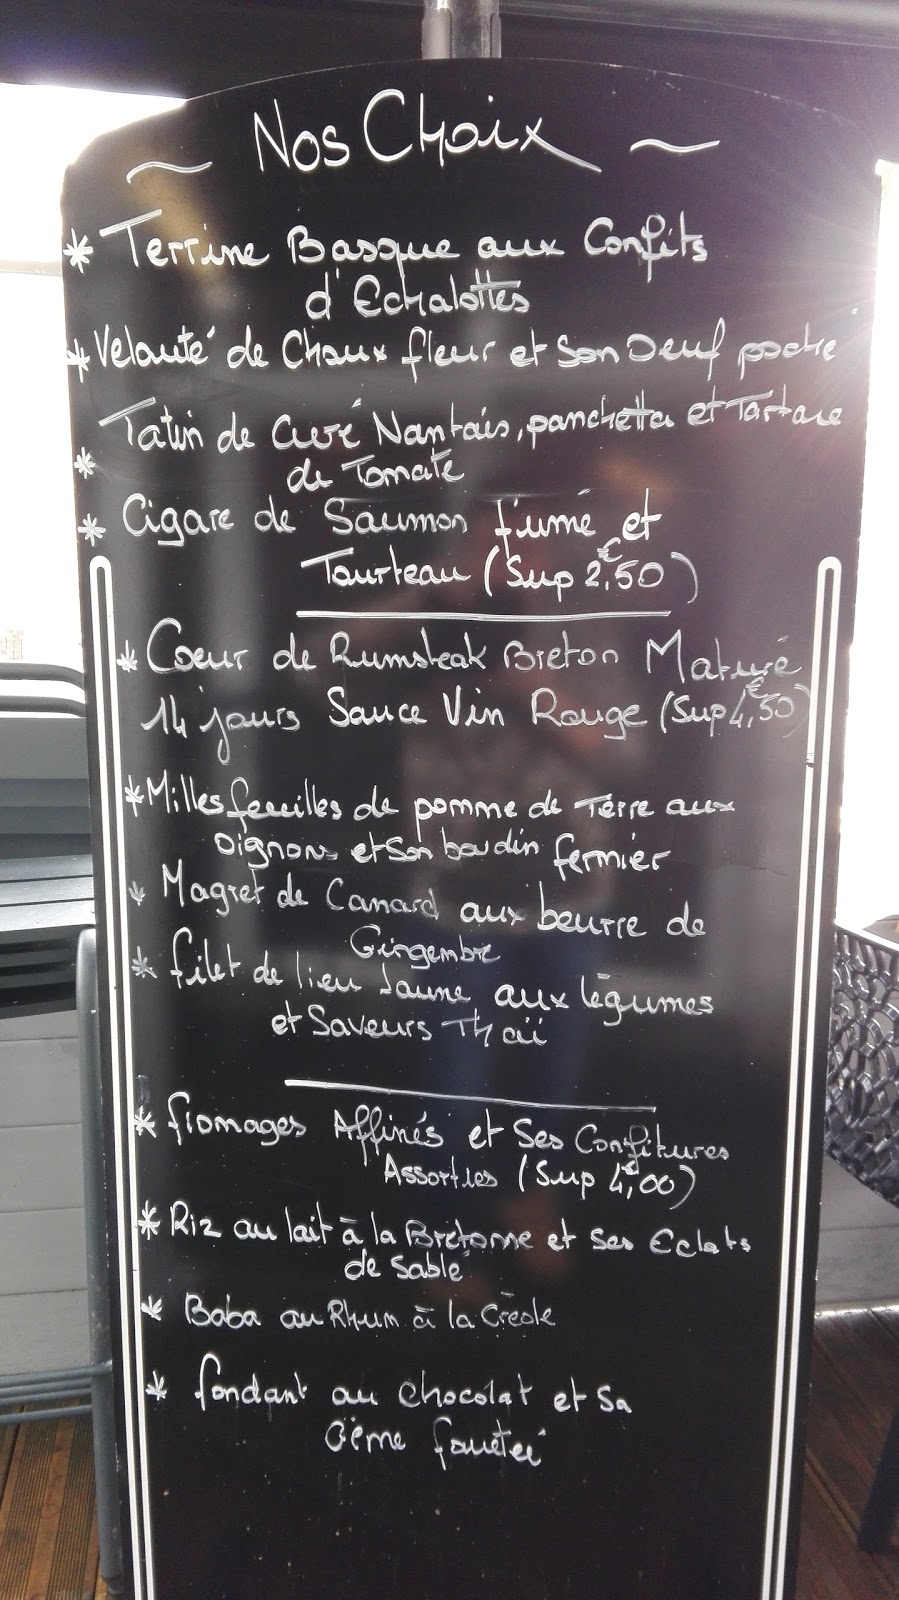 ~ Nos Choix ~
* Terrine Basque aux Confits
d'Echalottes
* Velouté de Choux fleur et Son Oeuf poché
* Tatin de Curé Nantais, panchetta et Tartare
de Tomate
* Cigare de Saumon fumé et
Tourteau (Sup 2,50€)
* Coeur de Rumsteak Breton Maturé
14 jours Sauce Vin Rouge (Sup 4,50€)
* Millesfeuilles de pomme de Terre aux
Oignons et Son boudin fermier
* Magret de Canard aux beurre de
Gingembre
* filet de lieu Jaune aux légumes
et Saveurs Thaï
* fromages Affinés et Ses Confitures
Assorties (Sup 4,00€)
* Riz au lait à la Bretonne et Ses Eclats
de Sablé
* Baba au Rhum à la Créole
* fondant au Chocolat et Sa
Crème